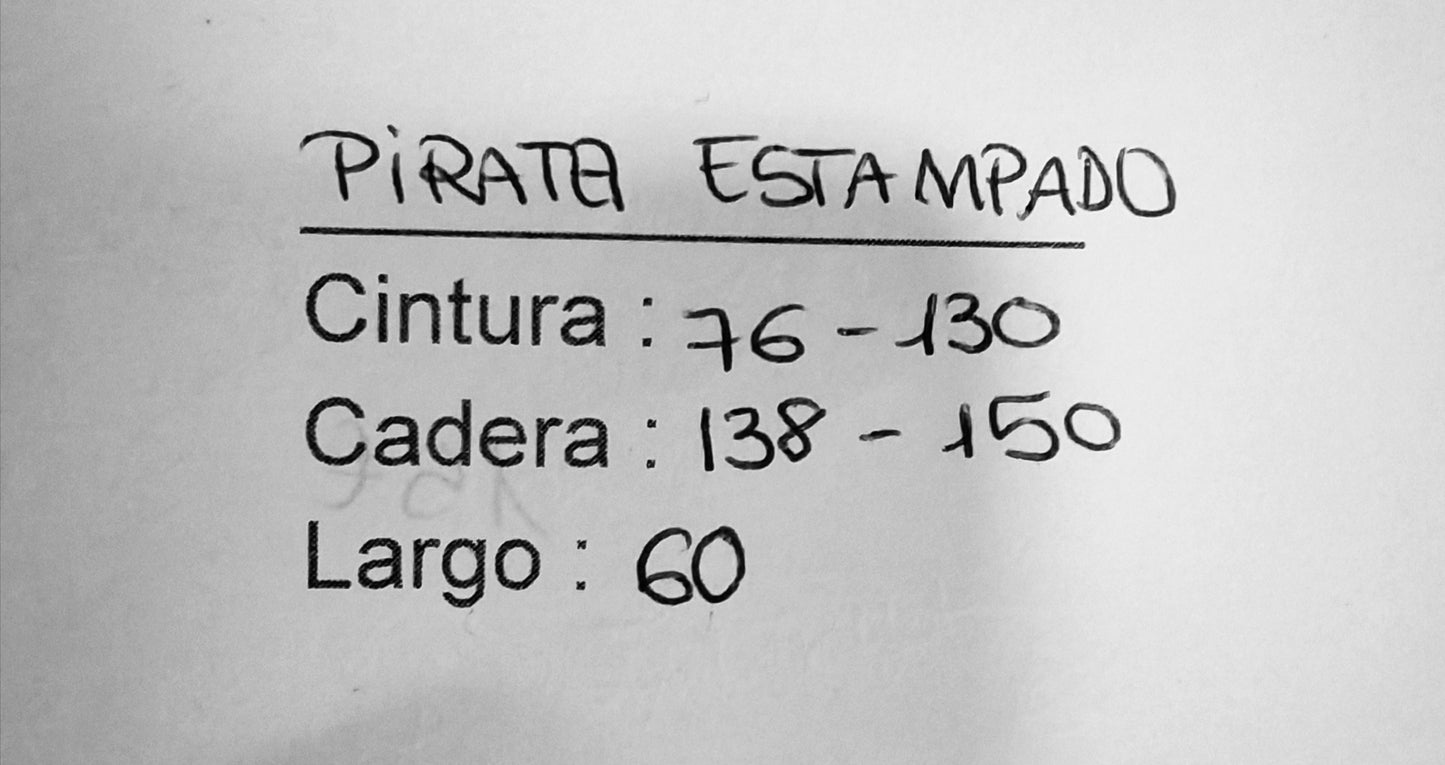 PiRATA ESTAMPADO
Cintura : 76 - 130
Cadera : 138 - 150
Largo : 60